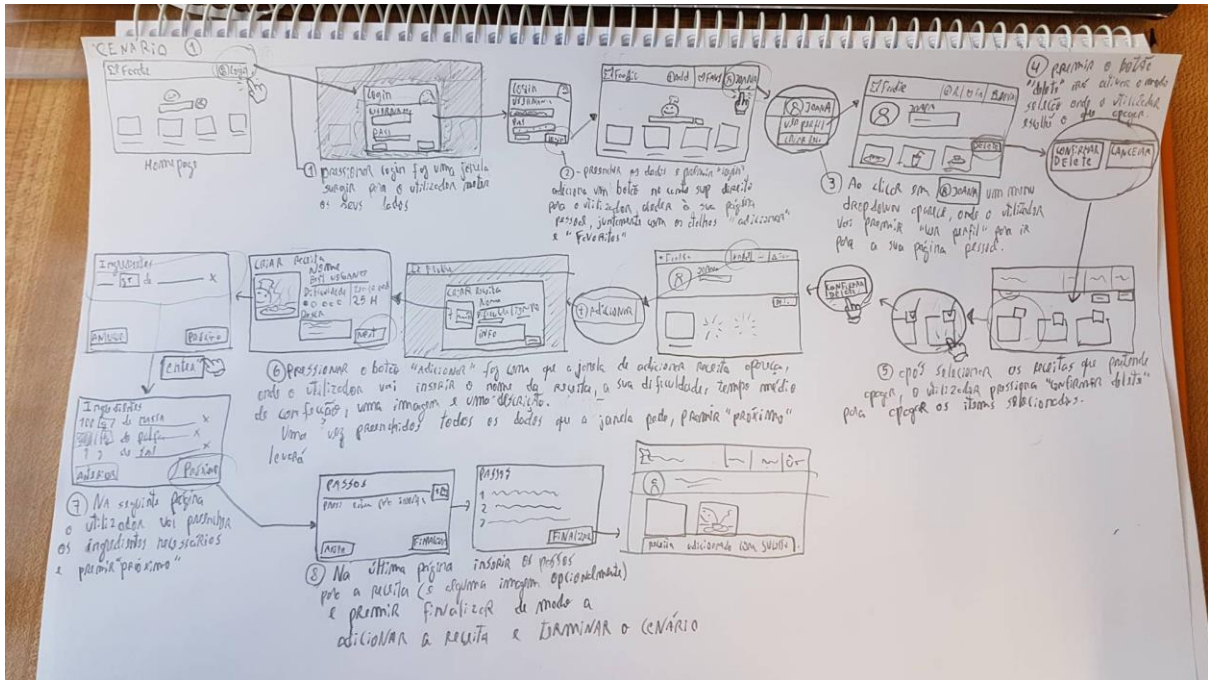 CENÁRIO ①
Foodie
Login
Homepage
Login
USERNAME
PASS
① pressionar login faz uma janela
surgir para o utilizador meter
os seus dados
Login
USERNAME
PAS
login
② - preencher os dados e premir "login"
adiciona um botão no canto sup direito
para o utilizador aceder à sua página
pessoal, juntamente com os "adicionar"
e "Favoritos"
Foodie
add
Favs
JOANA
JOANA
VER PERFIL
③ Ao clicar em JOANA um menu
dropdown aparece, onde o utilizador
vai premir "ver perfil" para ir
para a sua página pessoal.
Foodie
Joana
Delete
④ premir o botão
"delete" irá ativar o modo
seleção onde o utilizador
escolhe o que apagar.
CONFIRMAR
Delete
CANCELAR
⑤ após selecionar as receitas que pretende
apagar, o utilizador pressiona "confirmar delete"
para apagar os items selecionados.
CONFIRMA
Delete
Joana
+ ADICIONAR
CRIAR Receita
Nome
INFO
CRIAR Receita
Nome
Dificuldade
2.5 H
Descr
Next
⑥ pressionar o botão "ADICIONAR" faz com que a janela de adicionar receita apareça,
onde o utilizador vai inserir o nome da receita, a sua dificuldade, tempo médio
de confeção, uma imagem e uma descrição.
Uma vez preenchidos todos os dados que a janela pede, premir "próximo"
levará
Ingredientes
de
x
Próximo
"enter"
Ingredientes
100 g de massa x
de polpa x
de sal x
Anterior
Próximo
⑦ Na seguinte página
o utilizador vai preencher
os ingredientes necessários
e premir "próximo"
PASSOS
FINALIZAR
PASSOS
1
2
3
FINALIZAR
⑧ Na última página inserir os passos
para a receita (e alguma imagem opcionalmente)
e premir finalizar de modo a
adicionar a receita e terminar o cenário
receita adicionada com sucesso.